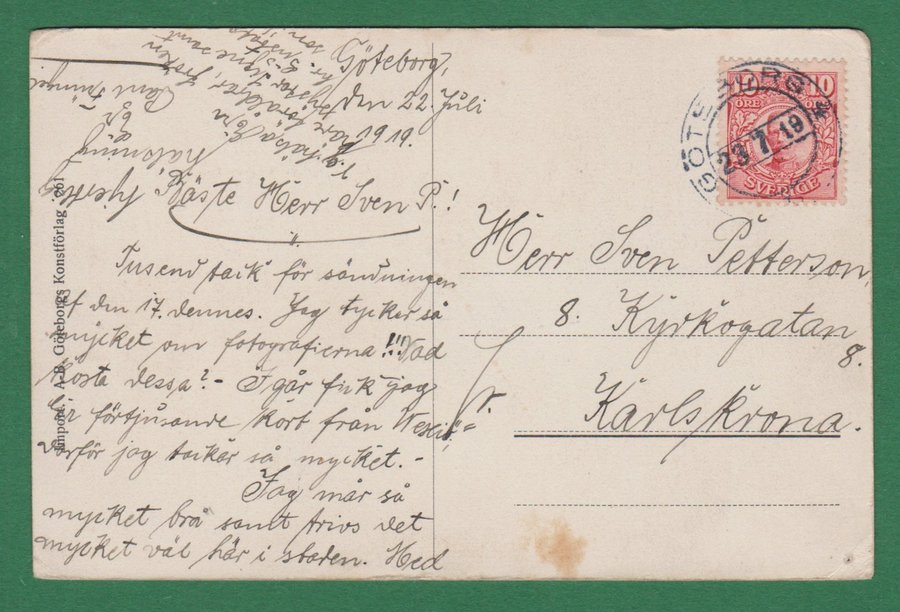 Göteborg,
den 22. Juli
1919.
Bäste Herr Sven P.!
Tusend tack för sändningen
af den 17. dennes. Jag tycker så
mycket om fotografierna!!! Vad
kosta dessa? - I går fick jag
förtjusande kort från
varför jag tackar så mycket. -
Jag mår så
mycket bra samt trivs det
mycket väl här i staden. Med
hjertlig
hälsning
Er
kära föräldrar,
samt
Import. A.-B. Göteborgs Konstförlag 201
GÖTEBORG
23 7 19
10 10
ÖRE
SVERIGE
Herr Sven Petterson,
8. Kyrkogatan 8.
Karlskrona.